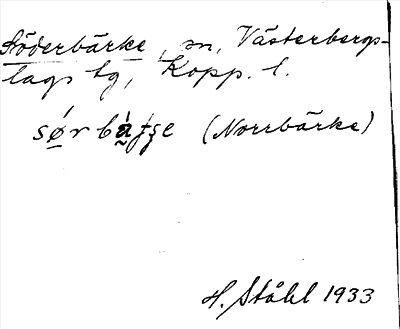 Söderbärke, sn, Västerbergs-
lags tg, Kopp. l.
(Norrbärke)
H. Ståhl 1933